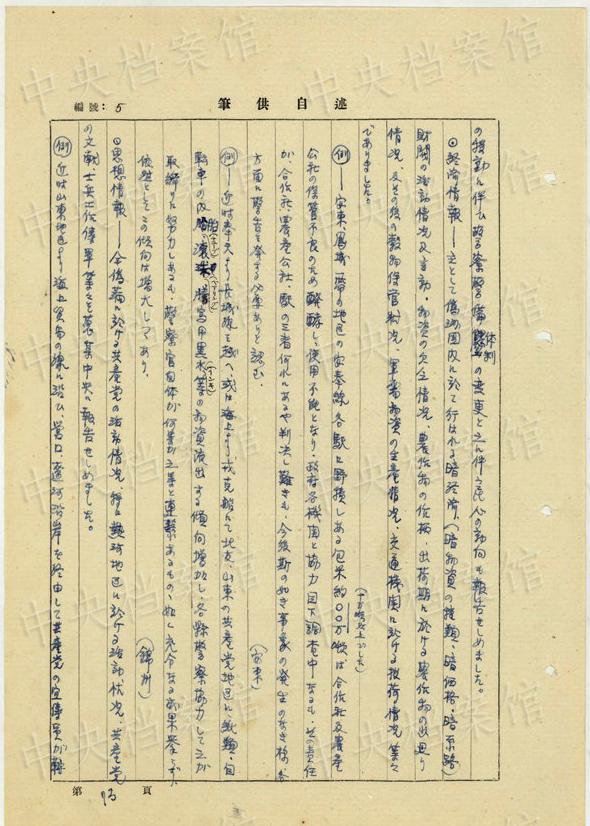 編號：5
述自供筆
の移動に伴ひ警察警備体制の変更と之に伴ふ民心の動向も報告せしめました。
◎経済情報——主として偽満国内に於て行はれる暗経済、(暗物資の種類、暗価格、暗系路)
財閥の活動情況及言動、物資の欠乏情況、農作物の作柄、出荷期に於ける農作物の出廻り
情況 及其の後の穀物保管状況、軍需物資の生産情況、交通機関に於ける投荷情況等々
でありました。
(十万瓲以上でした)
例——安東、鳳城一帯の地区の安奉線各駅に野積しある包米約〇〇万瓲は合作社及農産
公社の保管不良のため醗酵し使用不能となり、政府各機関と協力目下調査中なるも、其の責任
が、合作社、農産公社、駅の三者何れにあるや判決し難きも、今後斯の如き事象の発生のなき様、各
方面に警告を発する必要ありと認む。
(安東)
例——近時奉天より長城線を越へ、或は海上より戎克船にて北支、山東の共産党地区に紙類、自
転車の内胎(チューブ)滾珠(ベアリング)謄写用黒水(インキ)等の物資流出する傾向増加し、各縣警察協力して之が
取締りに努力しあるも、警察官自体が何等か之等と連繋あるものゝ如く充分なる成果挙らず、
依然としてこの傾向は増大してあり。
(錦州)
◎思想情報——全偽満に於ける共産党の活動情况、特に熱河地区に於ける活動状况、共産党
の文献、士兵工作 等々を蒐集中央に報告せしめました。
例 近時山東地区より海上貿易の線に沿ひ、営口、遼河沿岸を経由して共産党の宣傳員が
第 73 頁
中央档案馆